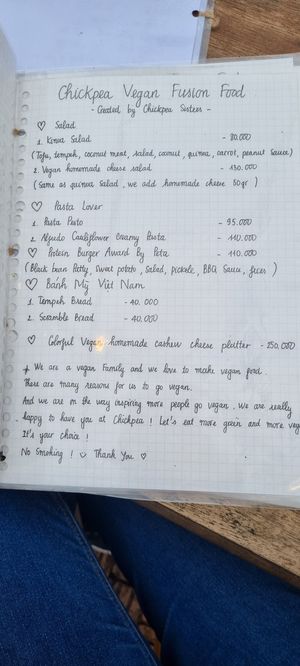 Chickpea Vegan Fusion Food
- Created by Chickpea Sisters -
♡ Salad
1. Kinwa Salad - 80.000
(Tofu, tempeh, coconut meat, salad, coconut, quinoa, carrot, peanut sauce)
2. Vegan homemade cheese salad - 130.000
(Same as quinoa salad, we add homemade cheese 50gr)
♡ Pasta Lover
1. Pasta Pesto - 95.000
2. Alfredo Cauliflower Creamy Pasta - 110.000
♡ Protein Burger Award By Peta - 110.000
(Black bean Patty, Sweet potato, Salad, pickele, BBQ Sauce, fries)
♡ Bánh Mỳ Việt Nam
1. Tempeh Bread - 40.000
2. Scramble Bread - 40.000
♡ Colorful Vegan homemade cashew cheese platter - 250.000
+ We are a vegan Family and we love to make vegan food.
There are many reasons for us to go vegan.
And we are on the way inspiring more people go vegan. We are really
happy to have you at Chickpea! Let's eat more green and more
It's your choice!
No Smoking! Thank You ♡